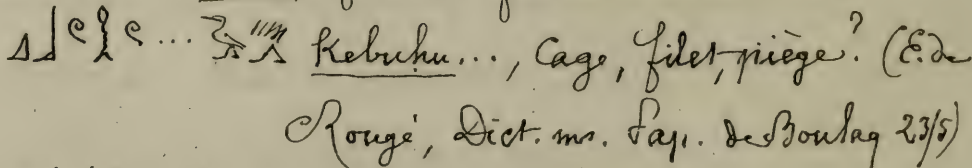 𓈎𓃀𓏲𓎛𓏲 ... Kebuhu..., Cage, filet, piège? (E. de
Rougé, Dict. ms. Pap. de Boulaq 23/5)